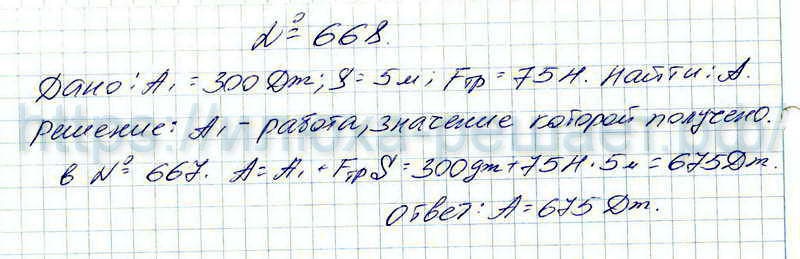 № 668.
Дано: A₁ = 300 Дж; S = 5 м; Fтр = 75 Н. Найти: A.
Решение: A₁ – работа, значение которой получено.
в № 667. A = A₁ + Fтр S = 300 дж + 75 Н · 5 м = 675 Дж.
Ответ: A = 675 Дж.